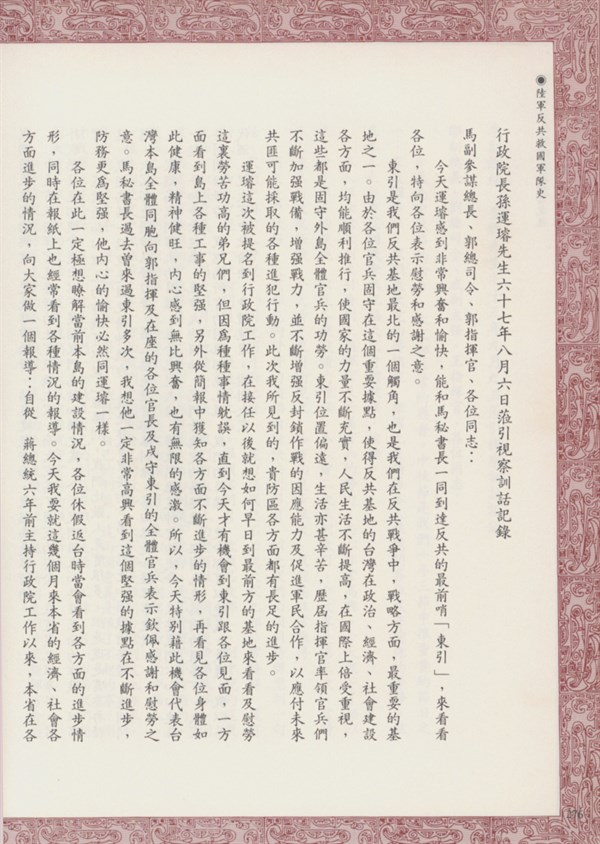 ●陸軍反共救國軍隊史
行政院長孫運璿先生六十七年八月六日蒞引視察訓話記錄
馬副參謀總長、郭總司令、郭指揮官、各位同志：
今天運璿感到非常興奮和愉快，能和馬秘書長一同到達反共的最前哨「東引」，來看看
各位，特向各位表示慰勞和感謝之意。
東引是我們反共基地最北的一個觸角，也是我們在反共戰爭中，戰略方面，最重要的基
地之一。由於各位官兵固守在這個重要據點，使得反共基地的台灣在政治、經濟、社會建設
各方面，均能順利推行，使國家的力量不斷充實，人民生活不斷提高，在國際上倍受重視，
這些都是固守外島全體官兵的功勞。東引位置偏遠，生活亦甚辛苦，歷屆指揮官率領官兵們
不斷加强戰備，增强戰力，並不斷增强反封鎖作戰的因應能力及促進軍民合作，以應付未來
共匪可能採取的各種進犯行動。此次我所見到的，貴防區各方面都有長足的進步。
運璿這次被提名到行政院工作，在接任以後就想如何早日到最前方的基地來看看及慰勞
這裏勞苦功高的弟兄們，但因為種種事情躭誤，直到今天才有機會到東引跟各位見面，一方
面看到島上各種工事的堅强，另外從簡報中獲知各方面不斷進步的情形，再看見各位身體如
此健康，精神健旺，内心感到無比興奮，也有無限的感激。所以，今天特別藉此機會代表台
灣本島全體同胞向郭指揮及在座的各位官長及戍守東引的全體官兵表示欽佩感謝和慰勞之
意。馬秘書長過去曾來過東引多次，我想他一定非常高興看到這個堅强的據點在不斷進步，
防務更為堅强，他内心的愉快必然同運璿一樣。
各位在此一定極想暸解當前本島的建設情況，各位休假返台時當會看到各方面的進步情
形，同時在報紙上也經常看到各種情況的報導。今天我要就這幾個月來本省的經濟、社會各
方面進步的情況，向大家做一個報導：自從 蔣總統六年前主持行政院工作以來，本省在各
276